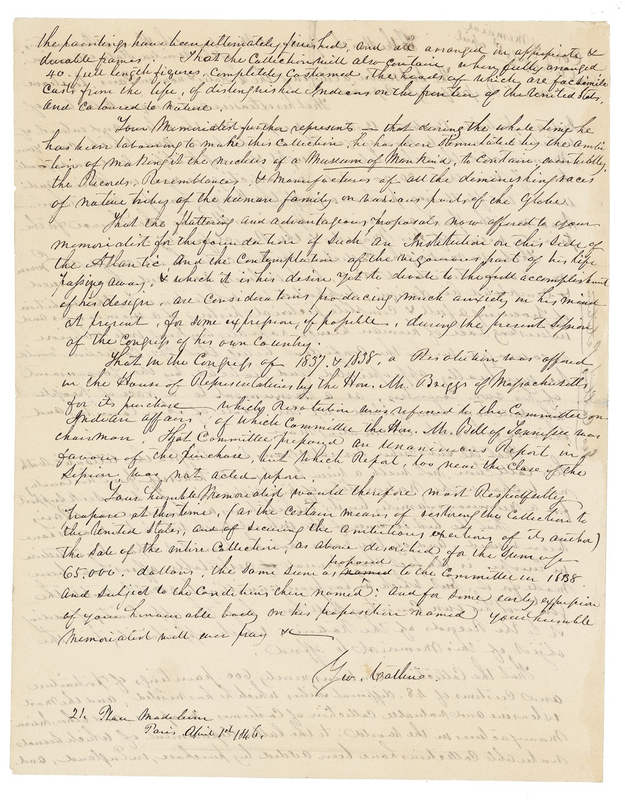 the paintings have been ultimately finished, and all arranged in appropriate &
durable frames That the Collection will also contain, when fully arranged
40. full length figures, completely Costumed, the heads of which are facsimile
Casts from the life, of distinguished Indians on the frontier of the United States,
and coloured to nature.
Your Memorialist further represents — that during the whole time he
has been labouring to make this Collection, he has been stimulated by the ambi-
-tion of making it the nucleus of a Museum of Mankind, to contain, eventually,
the Records, Resemblances, & Manufactures of all the diminishing races
of native tribes of the human family, on various parts of the Globe
That the flattering and advantageous proposals now offered to your
memorialist for the foundation of such an Institution on this side of
the Atlantic and the Contemplation of the vigourous part of his life
passing away, & which it is his desire yet to devote to the full accomplishment
of his design, are Considerations producing much anxiety in his mind
at present, for some expression, if possible, during the present Session
of the Congress of his own Country.
That in the Congress of 1837 & 1838, a Resolution was offered
in the House of Representatives by the Hon. Mr. Briggs of Massachusetts
for its purchase — which Resolution was referred to the Committee on
Indian affairs; of which Committee the Hon. Mr. Bell of Tennessee was
chairman. That Committee prepared an unanimous Report in
favour of the purchase, but which Report, too near the Close of the
Session was not acted upon.
Your humble Memorialist would therefore most Respectfully
propose at this time, (as the certain means of restoring the Collection to
the United States, and of securing the ambitious exertions of its author)
the sale of the entire Collection, as above described, for the Sum of
65,000. dollars, the same sum as proposed named to the Committee in 1838
and subject to the Conditions then named; and for some early expression
of your honourable body on his proposition named your humble
Memorialist will ever pray &c
Geo. Catlin.
21. Place Madeleine
Paris April 1st 1846.